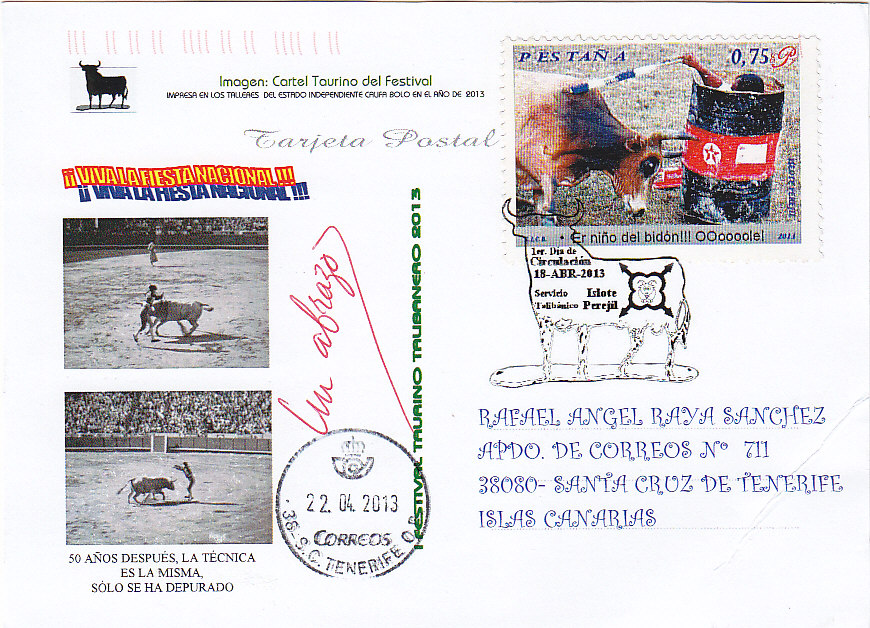 Imagen: Cartel Taurino del Festival
IMPRESA EN LOS TALLERES DEL ESTADO INDEPENDIENTE CAUFA BOLO EN EL AÑO DE 2013
Tarjeta Postal
¡¡ VIVA LA FIESTA NACIONAL !!!
PESTAÑA 0,75
Er niño del bidón!!! OOooooole! 2013
1er. Dia de
Circulación
18-ABR-2013
Servicio Islote
Talibánico Perejil
FESTIVAL TAURINO TAUBANERO 2013
Un abrazo
22.04.2013
CORREOS
38-S.C. TENERIFE O.P.
RAFAEL ANGEL RAYA SANCHEZ
APDO. DE CORREOS Nº 711
38080- SANTA CRUZ DE TENERIFE
ISLAS CANARIAS
50 AÑOS DESPUÉS, LA TÉCNICA
ES LA MISMA,
SÓLO SE HA DEPURADO